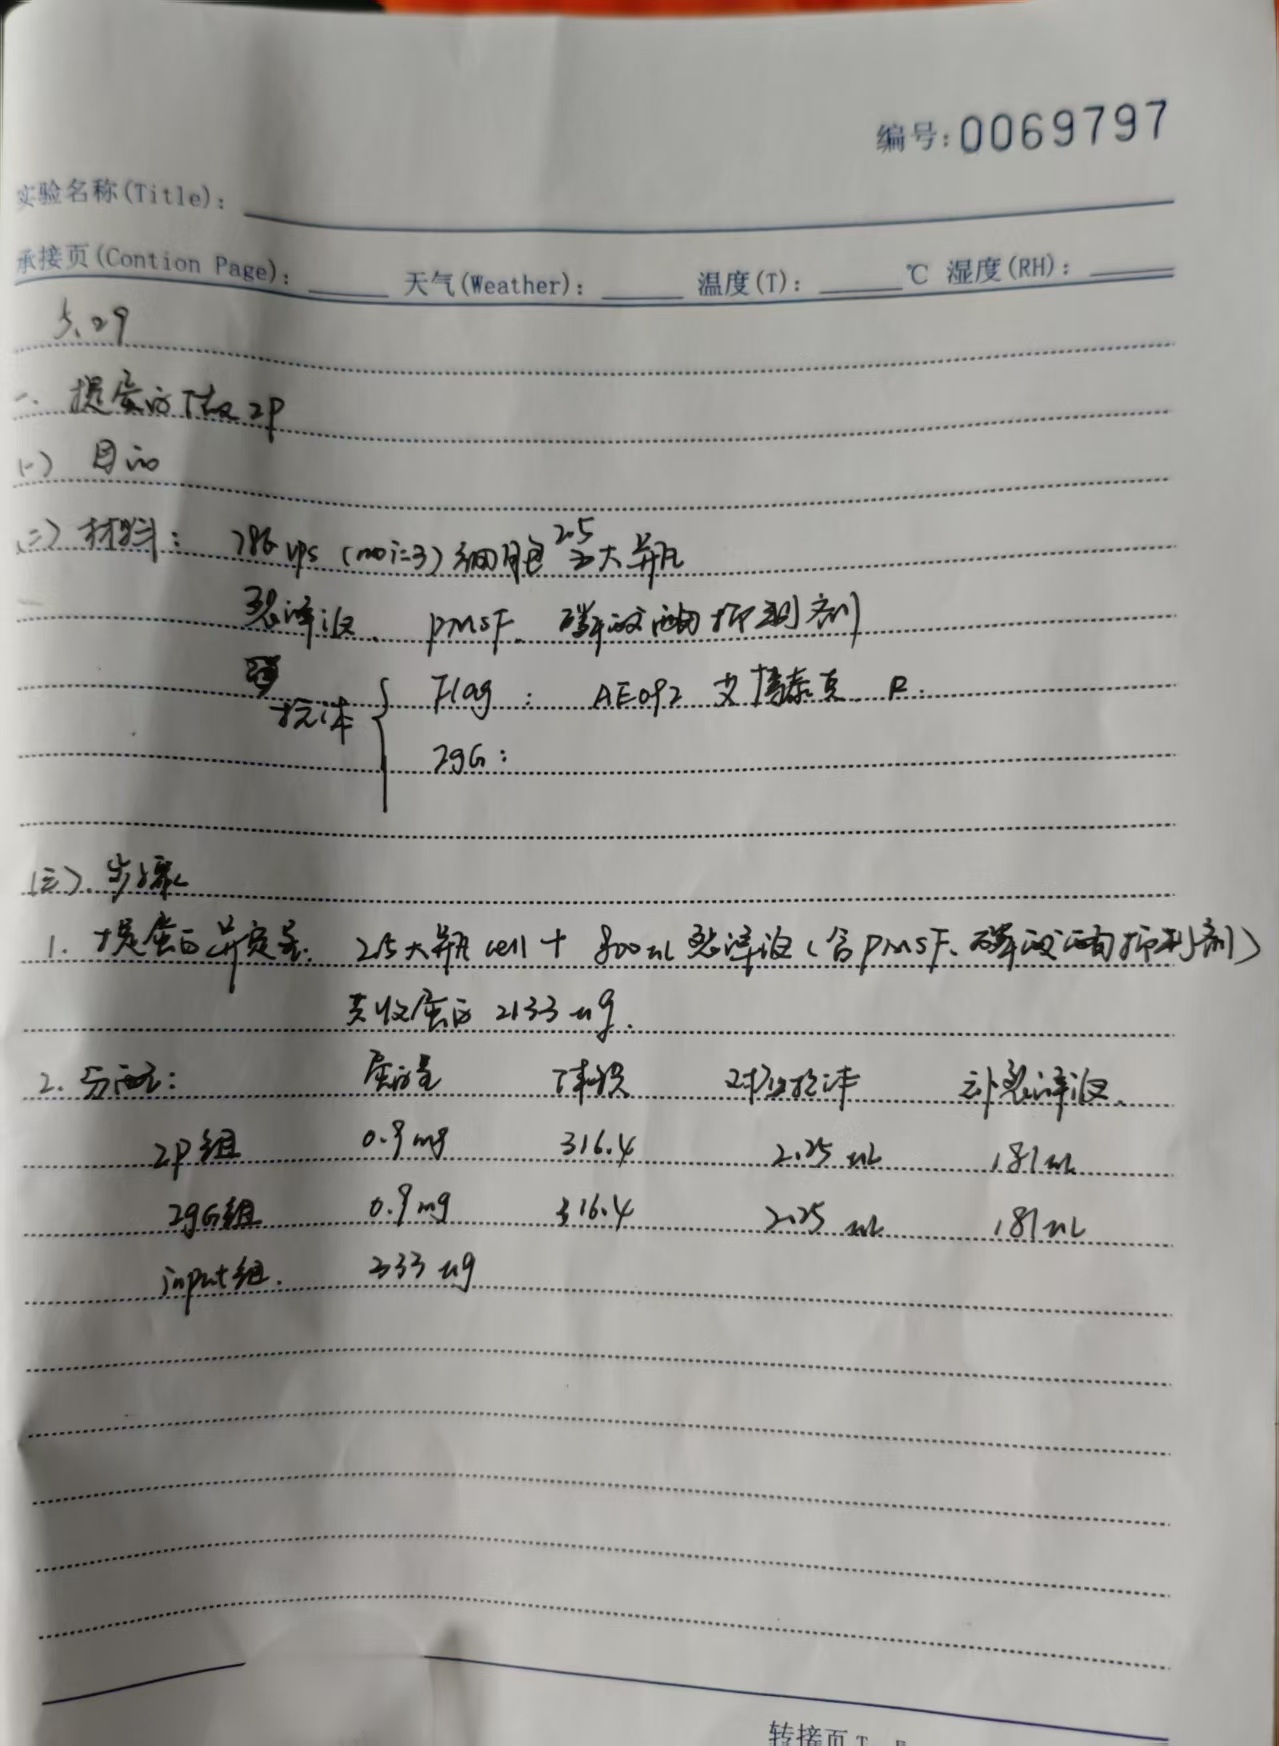 编号:0069797
实验名称(Title):
承接页(Contion Page): 天气(Weather): 温度(T): ℃ 湿度(RH):
5.29
一. 提蛋白下做IP
(一) 目的
(二) 材料: 786 vps (moi=3) 细胞 2.5 大瓶
裂解液、 PMSF、 磷酸酶抑制剂
抗体 { Flag: AE092 艾博泰克 R.
IgG:
(三). 步骤
1. 提蛋白并定量. 2.5大瓶 cell + 800 uL 裂解液(含PMSF、磷酸酶抑制剂)
共收蛋白 2133 ug.
2. 分配: 蛋白量 体积 对应抗体 补裂解液.
IP组 0.9 mg 316.4 2.25 uL 181 uL
IgG组 0.9 mg 316.4 2.25 uL 181 uL
input组. 333 ug
转接页